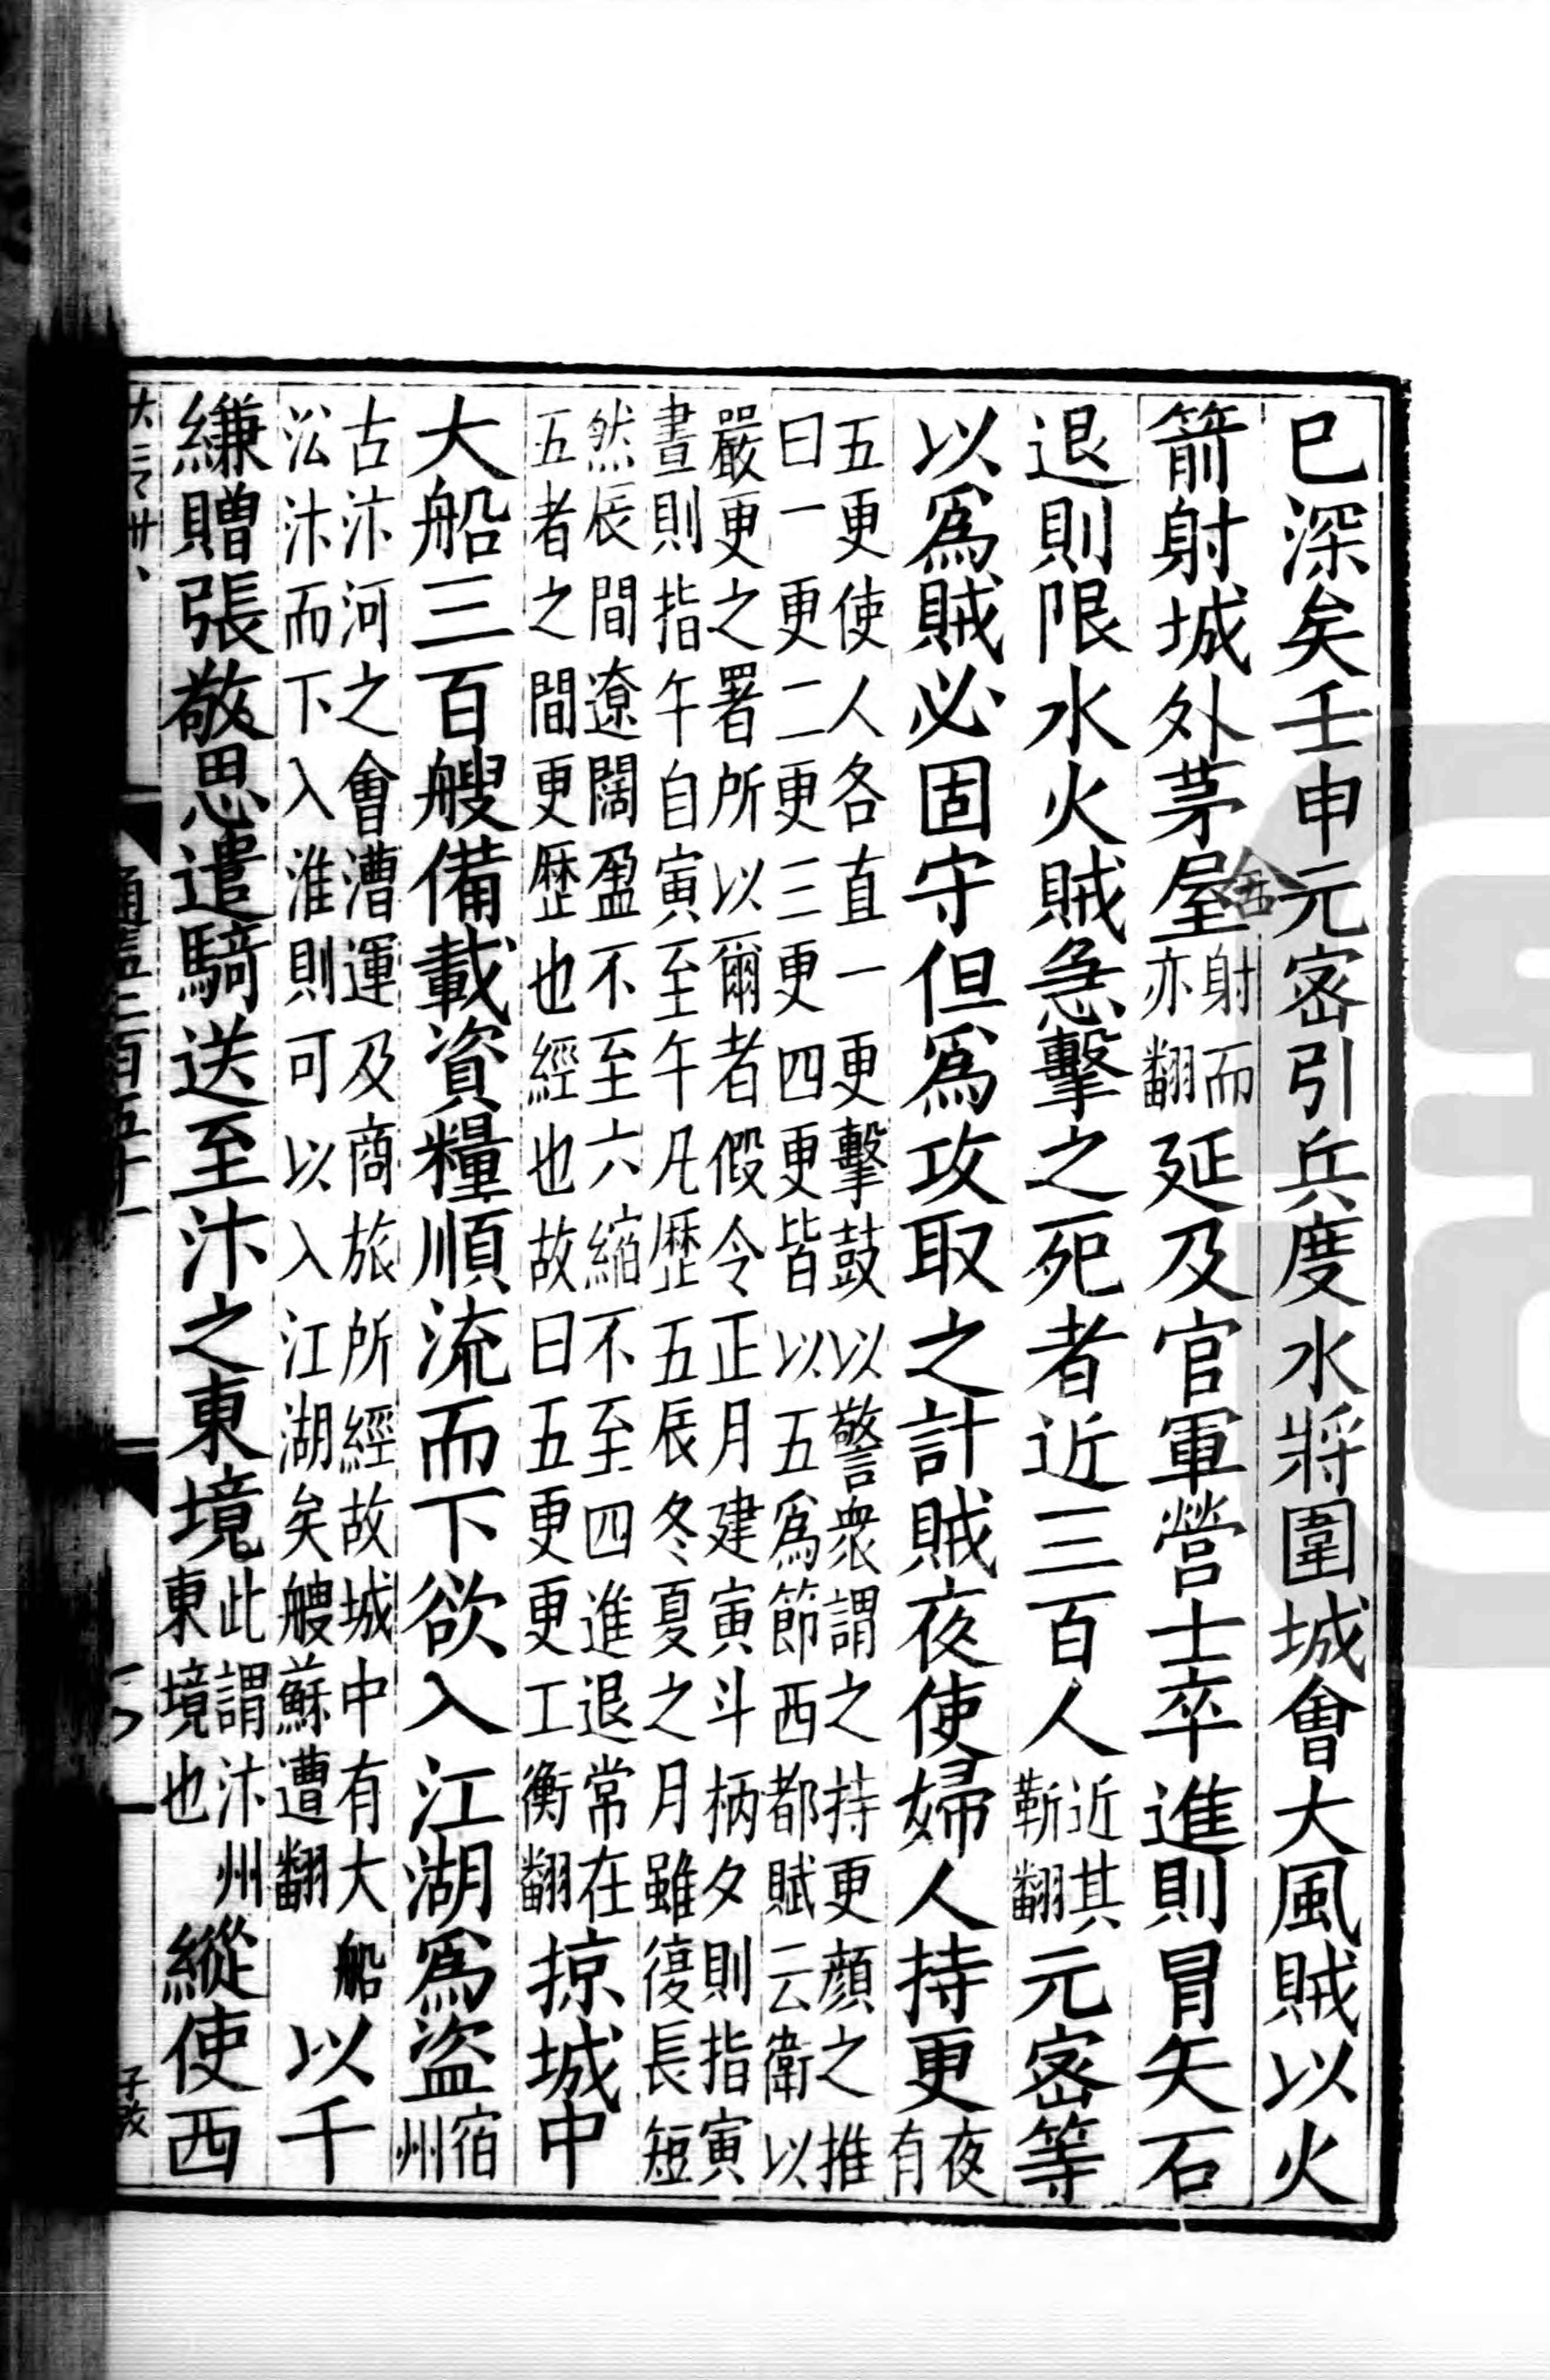 已深矣壬申元密引兵度水將圍城會大風賊以火
箭射城外茅屋舍射而亦翻延及官軍營士卒進則冒矢石
退則限水火賊急擊之死者近三百人近其靳翻元密等
以爲賊必固守但爲攻取之計賊夜使婦人持更夜有
五更使人各直一更擊鼓以警衆謂之持更顔之推
曰一更二更三更四更皆以五爲節西都賦云衛以
嚴更之署所以爾者假令正月建寅斗柄夕則指寅
晝則指午自寅至午凡歷五辰冬夏之月雖復長短
然辰間遼闊盈不至六縮不至四進退常在
五者之間更歷也經也故曰五更更工衡翻掠城中
大船三百艘備載資糧順流而下欲入江湖爲盜宿州
古汴河之會漕運及商旅所經故城中有大船
㳂汴而下入淮則可以入江湖矣艘蘇遭翻以千
縑贈張敬思遣騎送至汴之東境此謂汴州東境也縱使西
通鑑二百五十一